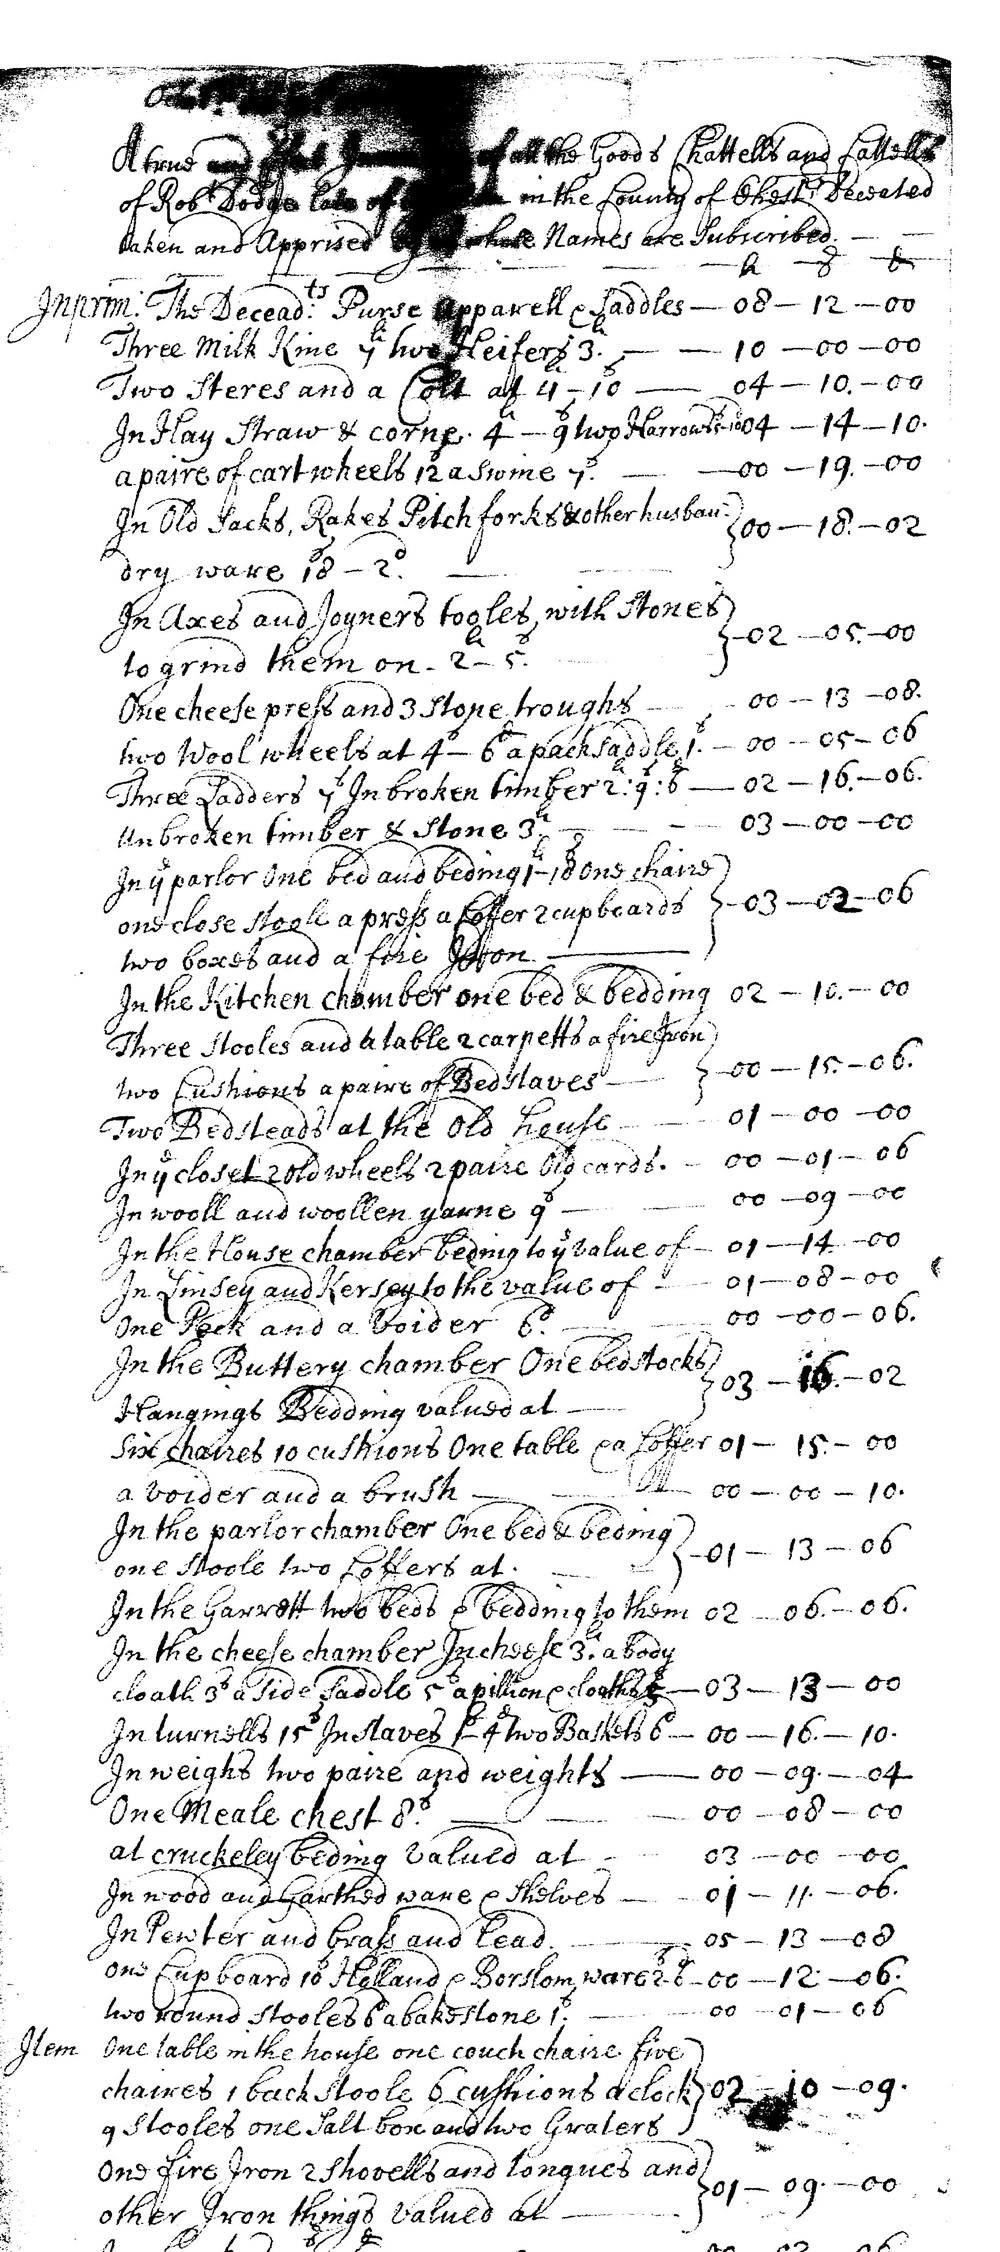 Octob
A true and of all the Goods Chattells and Cattells
of Robt Dodge late of in the County of Chestr Deceated
taken and Apprised by whose Names are Subscribed.
li s d
Inprim: The Deceadts Purse apparell & Saddles — 08 — 12 — 00
Three Milk Kine 7li two Heifers 3li. — — 10 — 00 — 00
Two Steres and a Colt at 4 – 10 — 04 — 10. — 00
In Hay Straw & corne. 4li — 9s two Harrows 04 — 14 — 10.
a paire of cart wheels 12s a swine 7s. — — 00 — 19. — 00
In Old Sacks, Rakes Pitchforks & other husban-
dry ware 18s – 2d. — } 00 — 18. — 02
In Axes and Joyners tooles, with Stones
to grind them on - 2li – 5s. } — 02 — 05. — 00
One cheese press and 3 Stone troughs — 00 — 13 — 08.
two Wool wheels at 4s – 6d a packsaddle 1s. — 00 — 05 — 06
Three Ladders 7s In broken timber 2li: 9s: 6d — 02 — 16. — 06.
Unbroken timber & Stone 3li. — — 03 — 00 — 00
In ye parlor One bed and beding 1li – 18s one chaire
one close stoole a press a Coffer 2 cupboards } — 03 — 02 — 06
two boxes and a fire Iron —
In the Kitchen chamber one bed & bedding 02 — 10. — 00
Three Stooles and a table 2 carpetts a fire Iron
two Cushions a paire of Bedstaves — } — 00 — 15. — 06.
Two Bedsteads at the Old house — 01 — 00 — 00
In ye closet 2 old wheels 2 paire Old cards. — 00 — 01 — 06
In wooll and woollen yarne 9s — 00 — 09 — 00
In the House chamber beding to ye value of — 01 — 14 — 00
In Linsey and Kersey to the value of — 01 — 08 — 00
One Peck and a Voider 6d. — 00 — 00 — 06.
In the Buttery chamber One bedstocks
Hangings Bedding valued at — } 03 — 16. — 02
Six chaires 10 cushions One table & a Coffer 01 — 15. — 00
a voider and a brush — 00 — 00 — 10.
In the parlor chamber One bed & beding
one stoole two Coffers at. } — 01 — 13 — 06
In the Garrett two beds & bedding to them 02 — 06. — 06.
In the cheese chamber In cheese 3li. a body
cloath 3s a Side Saddle 5s a pillion & cloath — 03 — 13 — 00
In turnells 15s In staves 1s – 4d two Baskets 6d — 00 — 16. — 10.
In weighs two paire and weights — 00 — 09. — 04
One Meale chest 8s. — — 00 — 08 — 00
at cruckeley beding valued at — 03 — 00 — 00
In wood and Earthed ware & Shelves — 01 — 11. — 06.
In Pewter and brass and lead. — 05 — 13 — 08
one Cupboard 10s Holland & Borslom ware 2s–6d — 00 — 12 — 06.
two round stooles 6d a bakestone 1s. — 00 — 01 — 06
Item One table in the house one couch chaire five
chaires 1 back stoole 6 cushions a clock } 02 — 10 — 09.
9 Stooles one Salt box and two Graters
One fire Iron 2 shovells and tongues and
other Iron things valued at — } 01 — 09. — 00